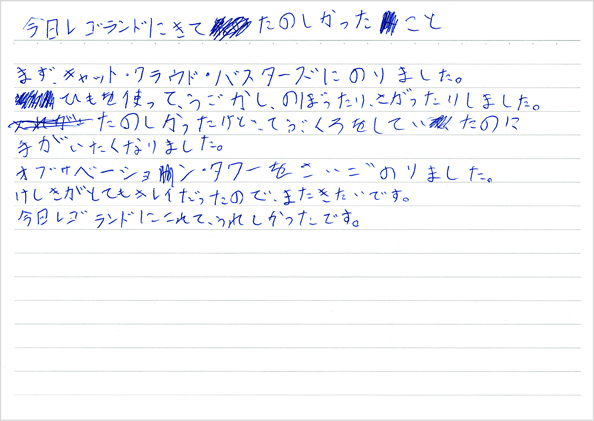 今日レゴランドにきてたのしかったこと
まず、キャット・クラウド・バスターズにのりました。
ひもを使って、うごかし、のぼったり、さがったりしました。
たのしかったけど、てぶくろをしていたのに
手がいたくなりました。
オブザベーション・タワーをさいごのりました。
けしきがとてもキレイだったので、またきたいです。
今日レゴランドにこれて、うれしかったです。